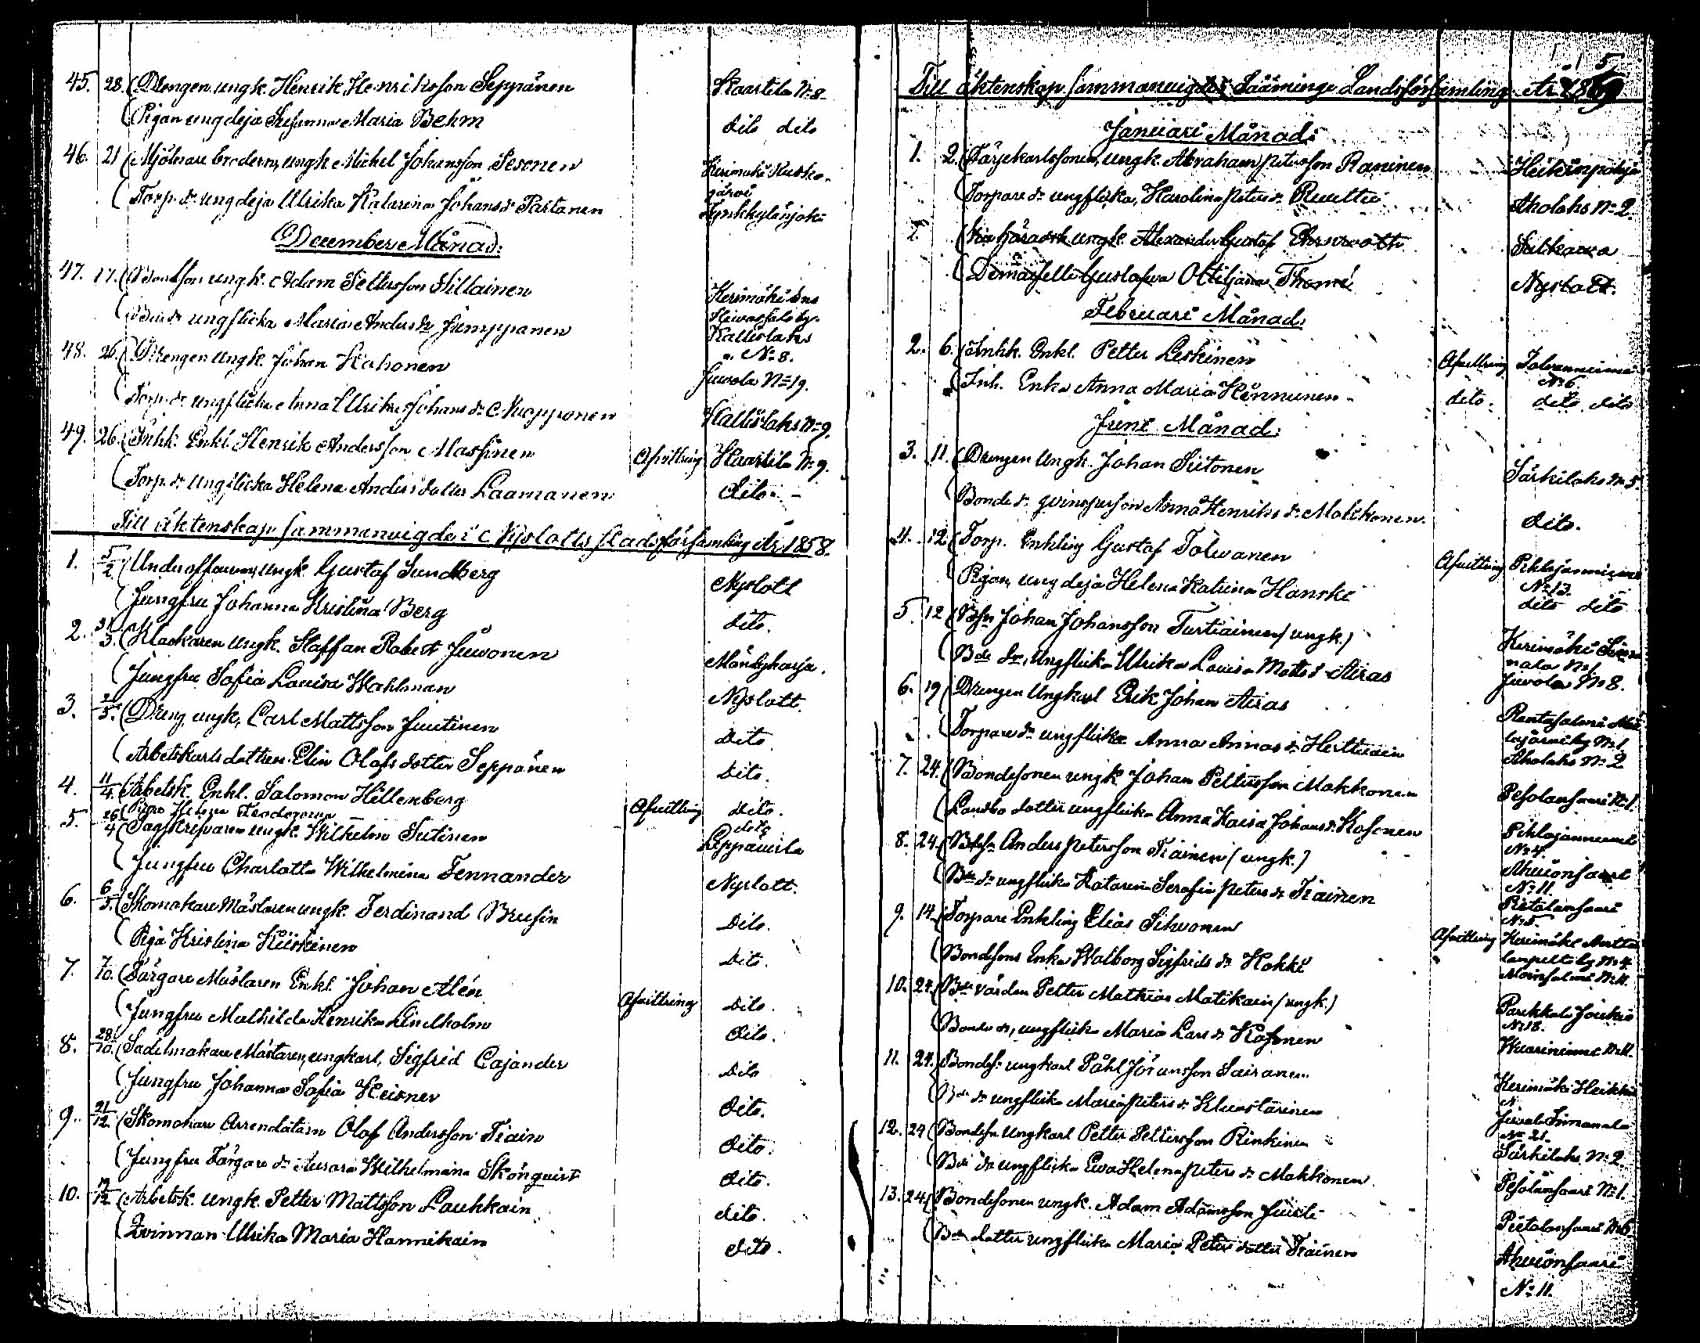 45. 28. Drengen ungk. Henrik Henriksson Seppänen Haartila N:o 8
Pigan ung deja Susanna Maria Behm dito dito
46. 21 Mjölnare brodern, ungk Michel Johansson Sesonen Kerimäki
Torp. dr ungdeja Ulrika Katarina Johans dr Partanen
December Månad:
47. 17. Bondeson ungk. Adam Pettersson Hillainen Kerimäki
Bonde dr ungflicka Maria Anders dr Jumppanen Kallislahs N:o 8.
48. 26. Drengen ungk. Johan Hahonen Juvola N:o 19.
Torp. dr ungflicka Anna Ulrika Johans dr Nuopponen Kallislahs N:o 9.
49. 26. Inhk. Enkl. Henrik Andersson Massinen Afvittring Haartila N:o 9.
Torp. dr Ungflicka Helena Andersdotter Laamanen dito.
Till äktenskap sammanvigde i Nyslotts stadsförsamling År 1858.
1. 5/2 Underofficeren, ungk. Gustaf Sundberg Nyslott
Jungfru Johanna Kristina Berg dito.
2. 31/3. Klockaren ungk. Staffan Robert Juvonen Mäntyharju.
Jungfru Sofia Lovisa Wahlman Nyslott.
3. 2/5. Dreng ungk. Carl Mattsson Juutinen Dito
Arbetskarls dottren Elin Olofs dotter Seppänen Dito.
4. 11/4. Arbetsk. Enkl. Salomon Hillenberg Afvittring dito.
Pigan Helena Feodorowna dito
5. 26/4 Sagskrifvaren ungk. Wilhelm Sutinen Leppävirta
Jungfru Charlotta Wilhelmina Fennander Nyslott.
6. 6/5. Skomakare Mästaren ungk. Ferdinand Brusin Dito.
Piga Kristina Kiiskinen dito.
7. 7/10. Färgare Mästaren Enkl. Johan Alén Afvittring dito.
Jungfru Mathilda Henrika Lindholm dito.
8. 28/10. Sadelmakare Mästaren, ungkarl, Sigfrid Cajander dito
Jungfru Johanna Sofia Heisner dito.
9. 21/12. Skomakare Arrendatorn Olof Andersson Tiain dito.
Jungfru Färgare dr Aurora Wilhelmina Skönqvist dito.
10. 12/12 Arbetsk. ungk. Petter Mattsson Laukkain dito.
Qvinnan Ulrika Maria Hannikain dito.
5
Till äktenskap sammanvigde Sääminge Landsförsamling År 1859
Januari Månad:
1. 2. Färjekarlssonen, ungk. Abraham Petersson Raninen Heikinpohja
Torpare dr ungflicka, Karolina Peters dr Ruutti Aholahs N:o 2.
7. ungk. Alexander Gustaf Ehrnrooth Sulkava
Demoiselle Gustafwa Ottiljana Thomé Nyslott.
Februari Månad:
2. 6. Inhk. Enkl. Petter Leskinen Afvittring Tolvanniemi N:o 6
Inh. Enka Anna Maria Hännunen dito. dito dito
Juni Månad:
3. 11. Drengen Ungk. Johan Siitonen Särkilahs N:o 5.
Bonde dr qvinsperson Anna Henriks dr Malkkonen. dito.
4. 12. Torp. Enkling Gustaf Tolwanen Afvittring Pihlajanniemi N:o 13.
Pigan, ung deja Helena Katrina Hanski dito dito
5. 12 Bsn Johan Johansson Turtiainen (ungk.) Kerimäki
Bde dr, Ungflicka Ulrika Lovisa Matts d. Airas Juvola N:o 8.
6. 19 Drengen Ungkarl Erik Johan Airas Rantasalmi
Torpare dr ungflicka Anna Annas dr Hirttiäin Aholahs N:o 2
7. 24. Bondesonen ungk. Johan Pettersson Makkonen Pesolansaari N:o 1.
Landbo dotter ungflicka Anna Kaisa Johans dr Kosonen Pihlajanniemi N:o 4.
8. 24. Bdesn Anders Petersson Tiainen (ungk.) Ahvionsaari N:o 11.
Bde dr ungflicka Katarina Serafia Peters dr Tiainen Pietolansaari N:o 5.
9. 14. Torpare Enkling Elias Sihvonen Afvittring Kerimäki
Bondesons Enka Walborg Sigfrids dr Hokki Moinsalmi N:o 11.
10. 24. Bde värden Petter Mathias Matikain (ungk.) Parikkala N:o 18.
Bonde dr, ungflicka Maria Lars dr Kosonen N:o 11.
11. 24. Bondes. ungkarl Påhl Göransson Sairanen Kerimäki
Bde dr ungflicka Maria Peters dr N:o 21.
12. 24 Bondesn Ungkarl Petter Pettersson Rinkinen Särkilahs N:o 2
Bde dr ungflicka Ewa Helena Peters dr Makkonen. Pesolansaari N:o 1.
13. 24 Bondesonen ungk. Adam Adamsson Juuti Pietolansaari N:o 6
Bde dotter ungflicka Maria Peters dotter Tiainen Ahvionsaari
N:o 11.